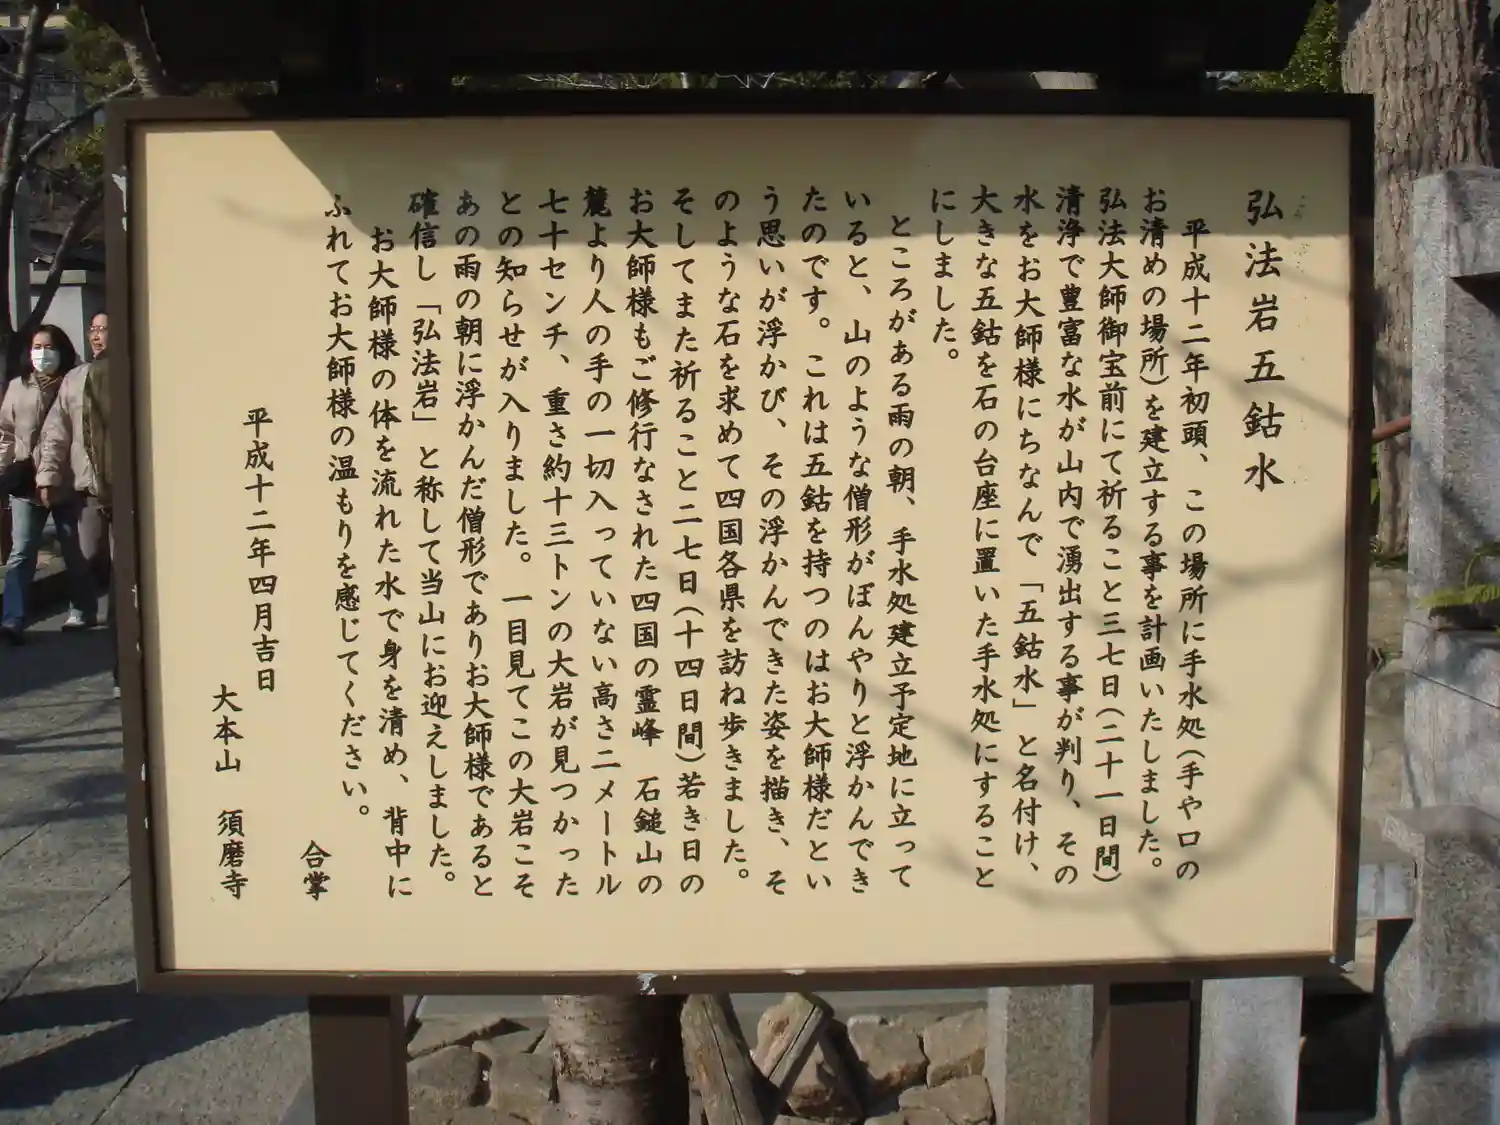 弘法岩五鈷水
平成十二年初頭、この場所に手水処(手や口の
お清めの場所)を建立する事を計画いたしました。
弘法大師御宝前にて祈ること三七日(二十一日間)
清浄で豊富な水が山内で湧出する事が判り、その
水をお大師様にちなんで「五鈷水」と名付け、
大きな五鈷を石の台座に置いた手水処にすること
にしました。
ところがある雨の朝、手水処建立予定地に立って
いると、山のような僧形がぼんやりと浮かんでき
たのです。これは五鈷を持つのはお大師様だとい
う思いが浮かび、その浮かんできた姿を描き、そ
のような石を求めて四国各県を訪ね歩きました。
そしてまた祈ること二七日(十四日間)若き日の
お大師様もご修行なされた四国の霊峰 石鎚山の
麓より人の手の一切入っていない高さ二メートル
七十センチ、重さ約十三トンの大岩が見つかった
との知らせが入りました。一目見てこの大岩こそ
あの雨の朝に浮かんだ僧形でありお大師様であると
確信し「弘法岩」と称して当山にお迎えしました。
お大師様の体を流れた水で身を清め、背中に
ふれてお大師様の温もりを感じてください。
合掌
平成十二年四月吉日
大本山 須磨寺